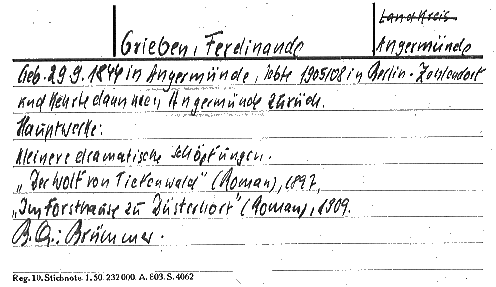 Landkreis
Grieben, Ferdinande Angermünde
Geb. 29.9.1844 in Angermünde, lebte 1905/08 in Berlin-Zehlendorf
und kehrte dann nach Angermünde zurück.
Hauptwerke:
Kleinere dramatische Schöpfungen.
„Der Wolf von Tiefenwald" (Roman), 1897,
„Im Forsthause zu Düsterhort" (Roman), 1909.
B.Q.: Brümmer.
Reg. 10. Stichnote 1. 50. 232000. A. 803. S. 4062